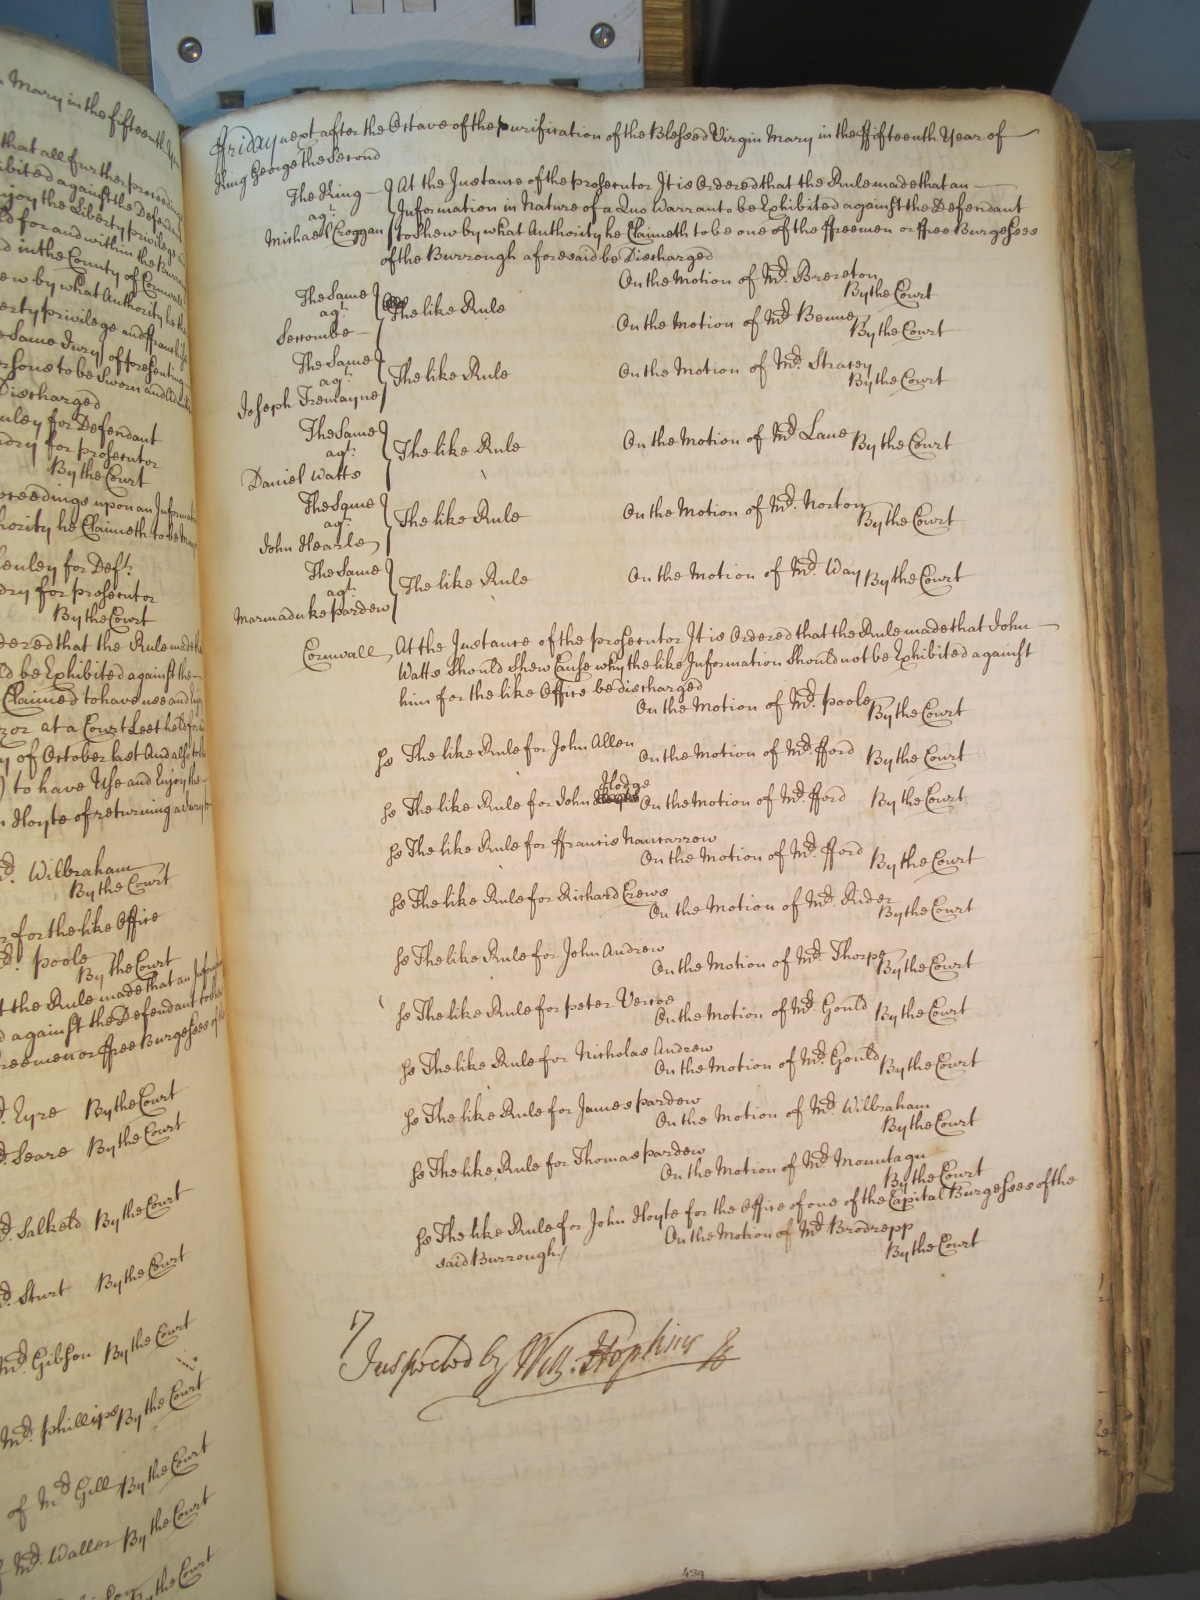 Mary in the fifteenth
that all further proceedings
exhibited against the Defendant
enjoy the Liberty privilege
for and within the
in the County of Cornwall
shew by what Authority he
Liberty privilege and ffranchise
same Jury of presenting
persons to be Sworn and
Discharged
for Defendant
for prosecutor
By the Court
proceedings upon an
Authority he Claimeth to be
for Def.t
for prosecutor
By the Court
Ordered that the Rule made
be Exhibited against the
Claimed to have use and
at a Court Leet held
of October last And also
to have Use and Enjoy the
Hoyte of returning a Jury
M.r Wilbraham
By the Court
for the like Office
poole By the Court
the Rule made that an
against the Defendant to
ffreemen or ffree Burgesses of
Eyre By the Court
Seare By the Court
Salkeld By the Court
Sturt By the Court
M.r Gibson By the Court
M.r Phillips By the Court
of M.r Gill By the Court
M.r Waller By the Court
By the Court
ffriday next after the Octave of the purification of the Blessed Virgin Mary in the ffifteenth Year of
King George the Second
The King
ag.t
Michael Croggan
At the Instance of the prosecutor It is Ordered that the Rule made that an
Information in Nature of a Quo Warranto be Exhibited against the Defendant
to shew by what Authority he Claimeth to be one of the ffreemen or ffree Burgesses
of the Burrough aforesaid be Discharged
On the Motion of M.r Brereton
By the Court
The Same
ag.t
Sercombe
The like Rule
On the Motion of M.r Benney
By the Court
The Same
ag.t
Joseph Tremayne
The like Rule
On the Motion of M.r Stracey
By the Court
The Same
ag.t
Daniel Watts
The like Rule
On the Motion of M.r Lane By the Court
The Same
ag.t
John Hearle
The like Rule
On the Motion of M.r Norton
By the Court
The Same
ag.t
Marmaduke pardew
The like Rule
On the Motion of M.r Way By the Court
Cornwall
At the Instance of the prosecutor It is Ordered that the Rule made that John
Watts Should Shew Cause why the like Information Should not be Exhibited against
him for the like Office be discharged
On the Motion of M.r poole By the Court
ss The like Rule for John Allen
On the Motion of M.r fford By the Court
Hodge
ss The like Rule for John On the Motion of M.r fford By the Court
ss The like Rule for ffrancis Nancarrow
On the Motion of M.r fford By the Court
ss The like Rule for Richard Crews
On the Motion of M.r Rider
By the Court
ss The like Rule for John Andrew
On the Motion of M.r Thorpe
By the Court
ss The like Rule for peter Vercoe
On the Motion of M.r Gould By the Court
ss The like Rule for Nicholas Andrew
On the Motion of M.r Gould By the Court
ss The like Rule for James pardew
On the Motion of M.r Wilbraham
By the Court
ss The like Rule for Thomas pardew
On the Motion of M.r Mountagu
By the Court
ss The like Rule for John Hoyte for the Office of one of the Capital Burgesses of the
said Burrough
On the Motion of M.r Brodrepp
By the Court
17
Inspected by Will: Hopkins
439